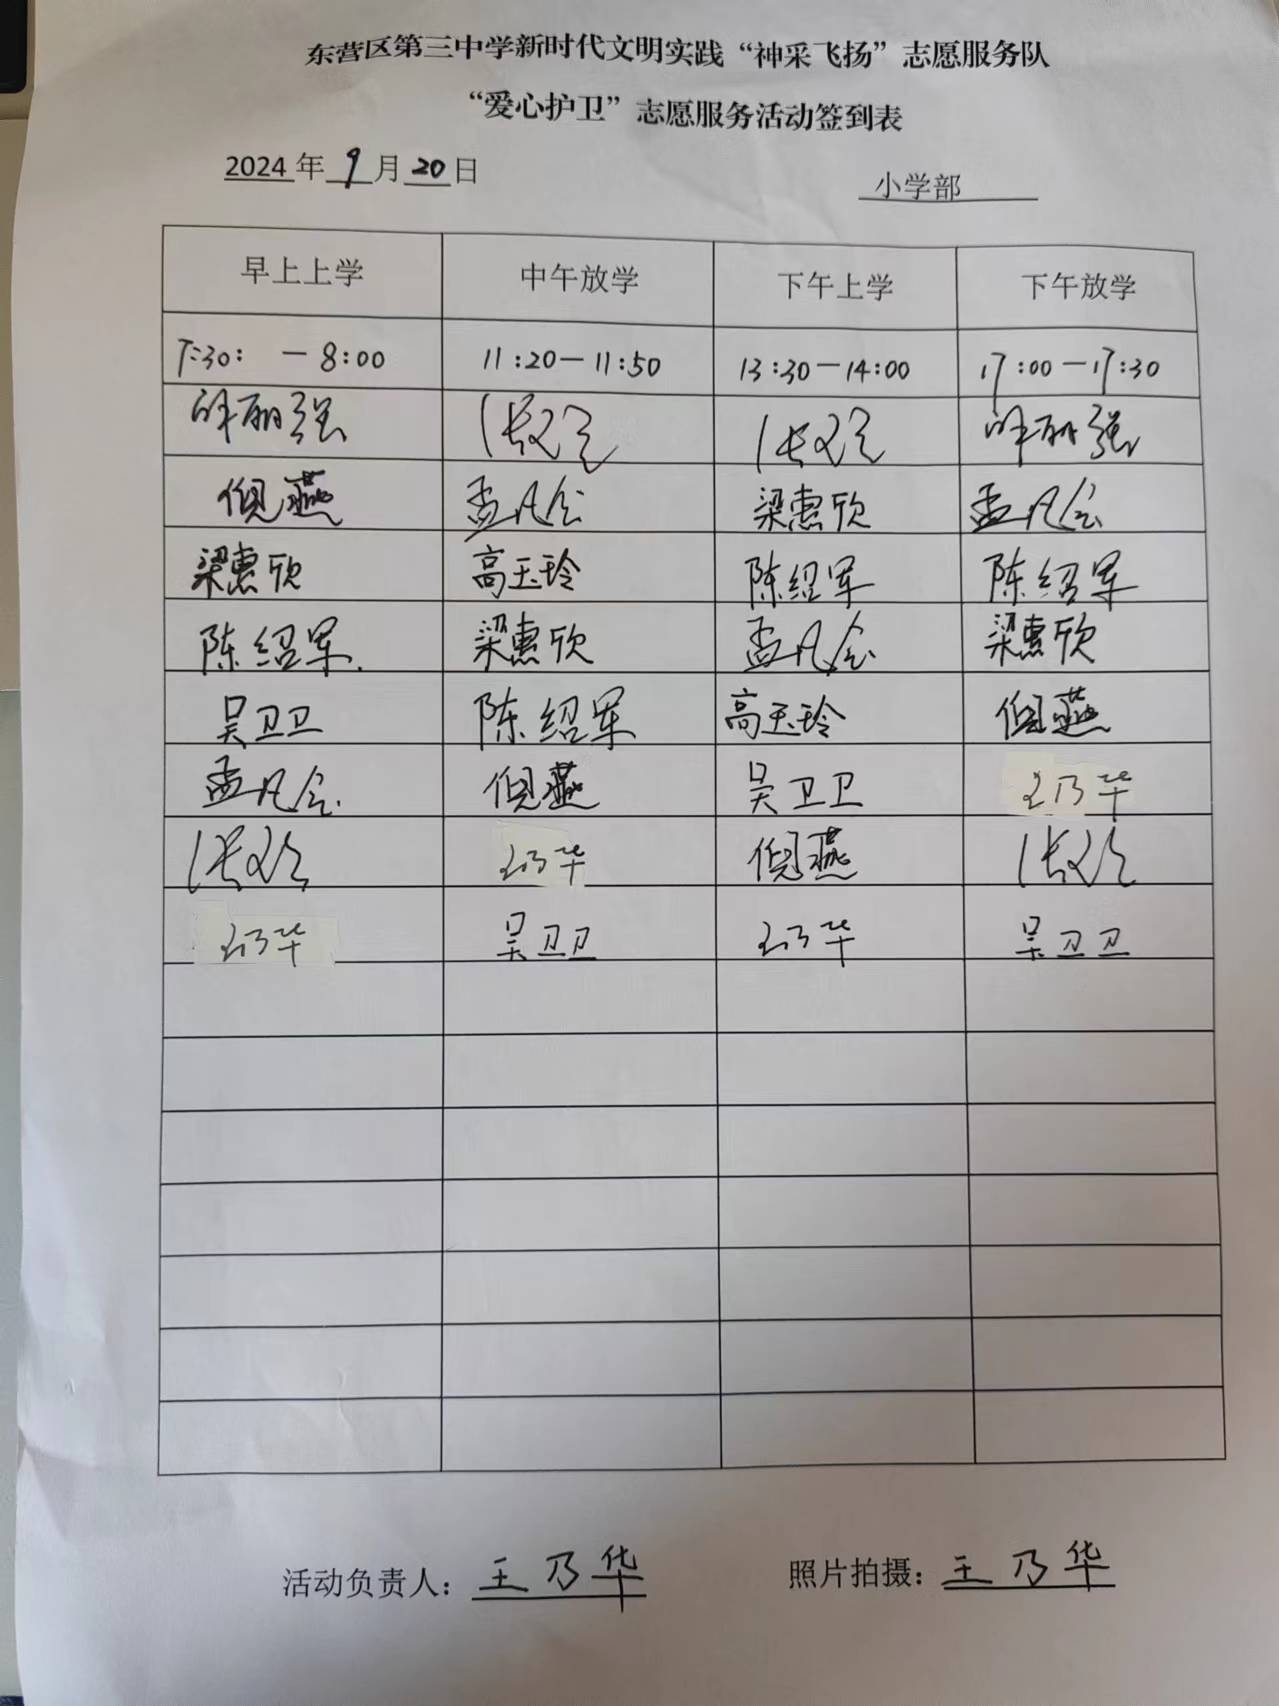 东营区第三中学新时代文明实践“神采飞扬”志愿服务队
“爱心护卫”志愿服务活动签到表
2024年 9 月 20 日 小学部
早上上学 中午放学 下午上学 下午放学
7:30: — 8:00 11:20—11:50 13:30—14:00 17:00—17:30
倪燕 孟凡会 梁惠欣 孟凡会
梁惠欣 高玉玲 陈绍军 陈绍军
陈绍军 梁惠欣 孟凡会 梁惠欣
吴卫卫 陈绍军 高玉玲 倪燕
孟凡会 倪燕 吴卫卫 王乃华
王乃华 倪燕
王乃华 吴卫卫 王乃华 吴卫卫
活动负责人：王乃华 照片拍摄：王乃华